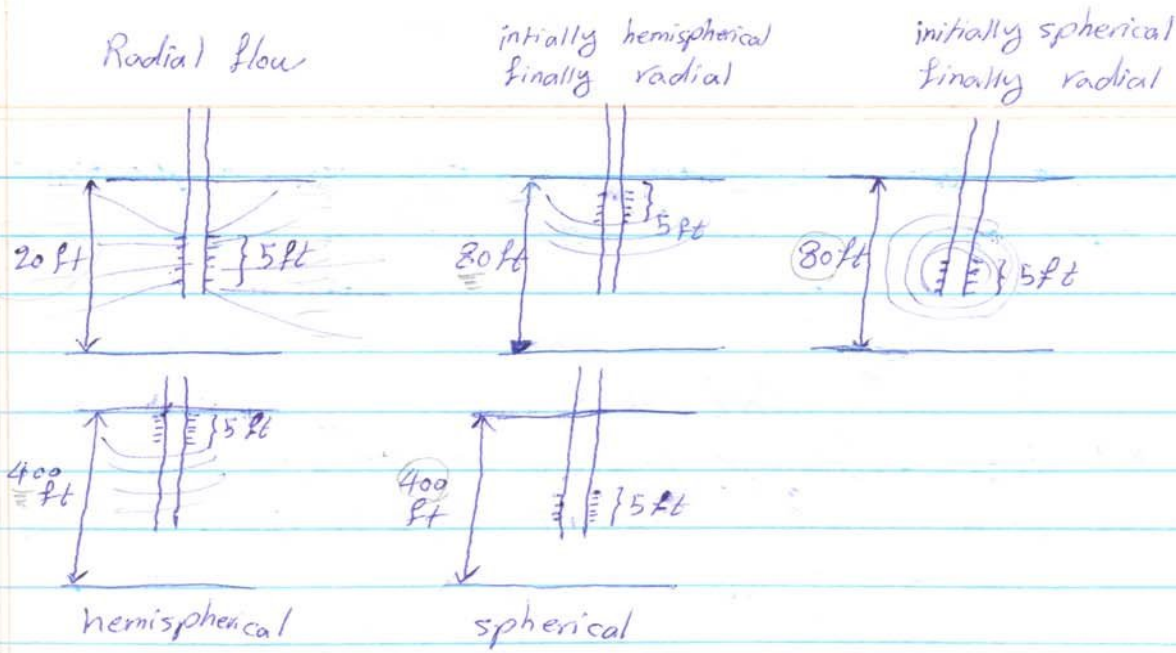 Radial flow
intially hemispherical
finally radial
initially spherical
finally radial
20 ft
5 ft
80 ft
5 ft
80 ft
5 ft
400
ft
5 ft
400
ft
5 ft
hemispherical
spherical